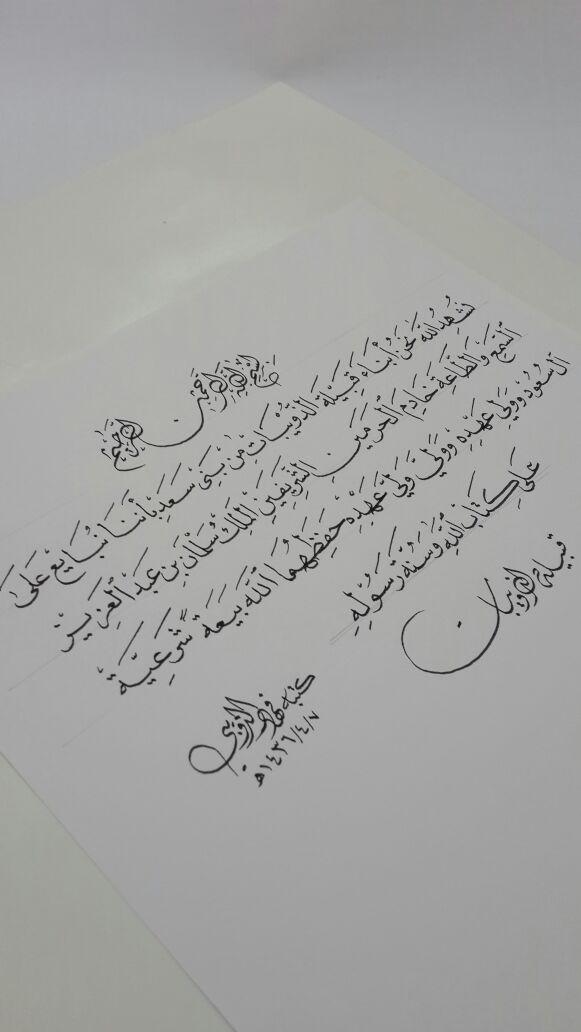 بسم الله الرحمن الرحيم
نُشهِدُ الله نَحْنُ أَبْنَاءِ قَبِيلَة الذُّوَيْبَاتِ مِنْ بَنِي سَعَد بأَننَا نُبَايعْ عَلَىٰ
السَّمْعِ وَالطَّاعَةِ خَادِم الْحَرَمَيْنِ الشَّرِيفَيْنِ الْمَلِك سُلْمَان بن عَبْد الْعَزِيزْ
آل سُعُود وَوَلِيّ عَهْدِهِ وَوَلِيّ وَلِيّ عَهْدِه حَفِظَهُمَا اللَّه بَيعَة شَرْعِيَّة
عَلَى كِتَابِ اللَّهِ وَسُنَّة رَسُولِهِ
قبيلة الذويبات
كتبه فهد الذويبي
١٤٣٦/٤/٧هـ